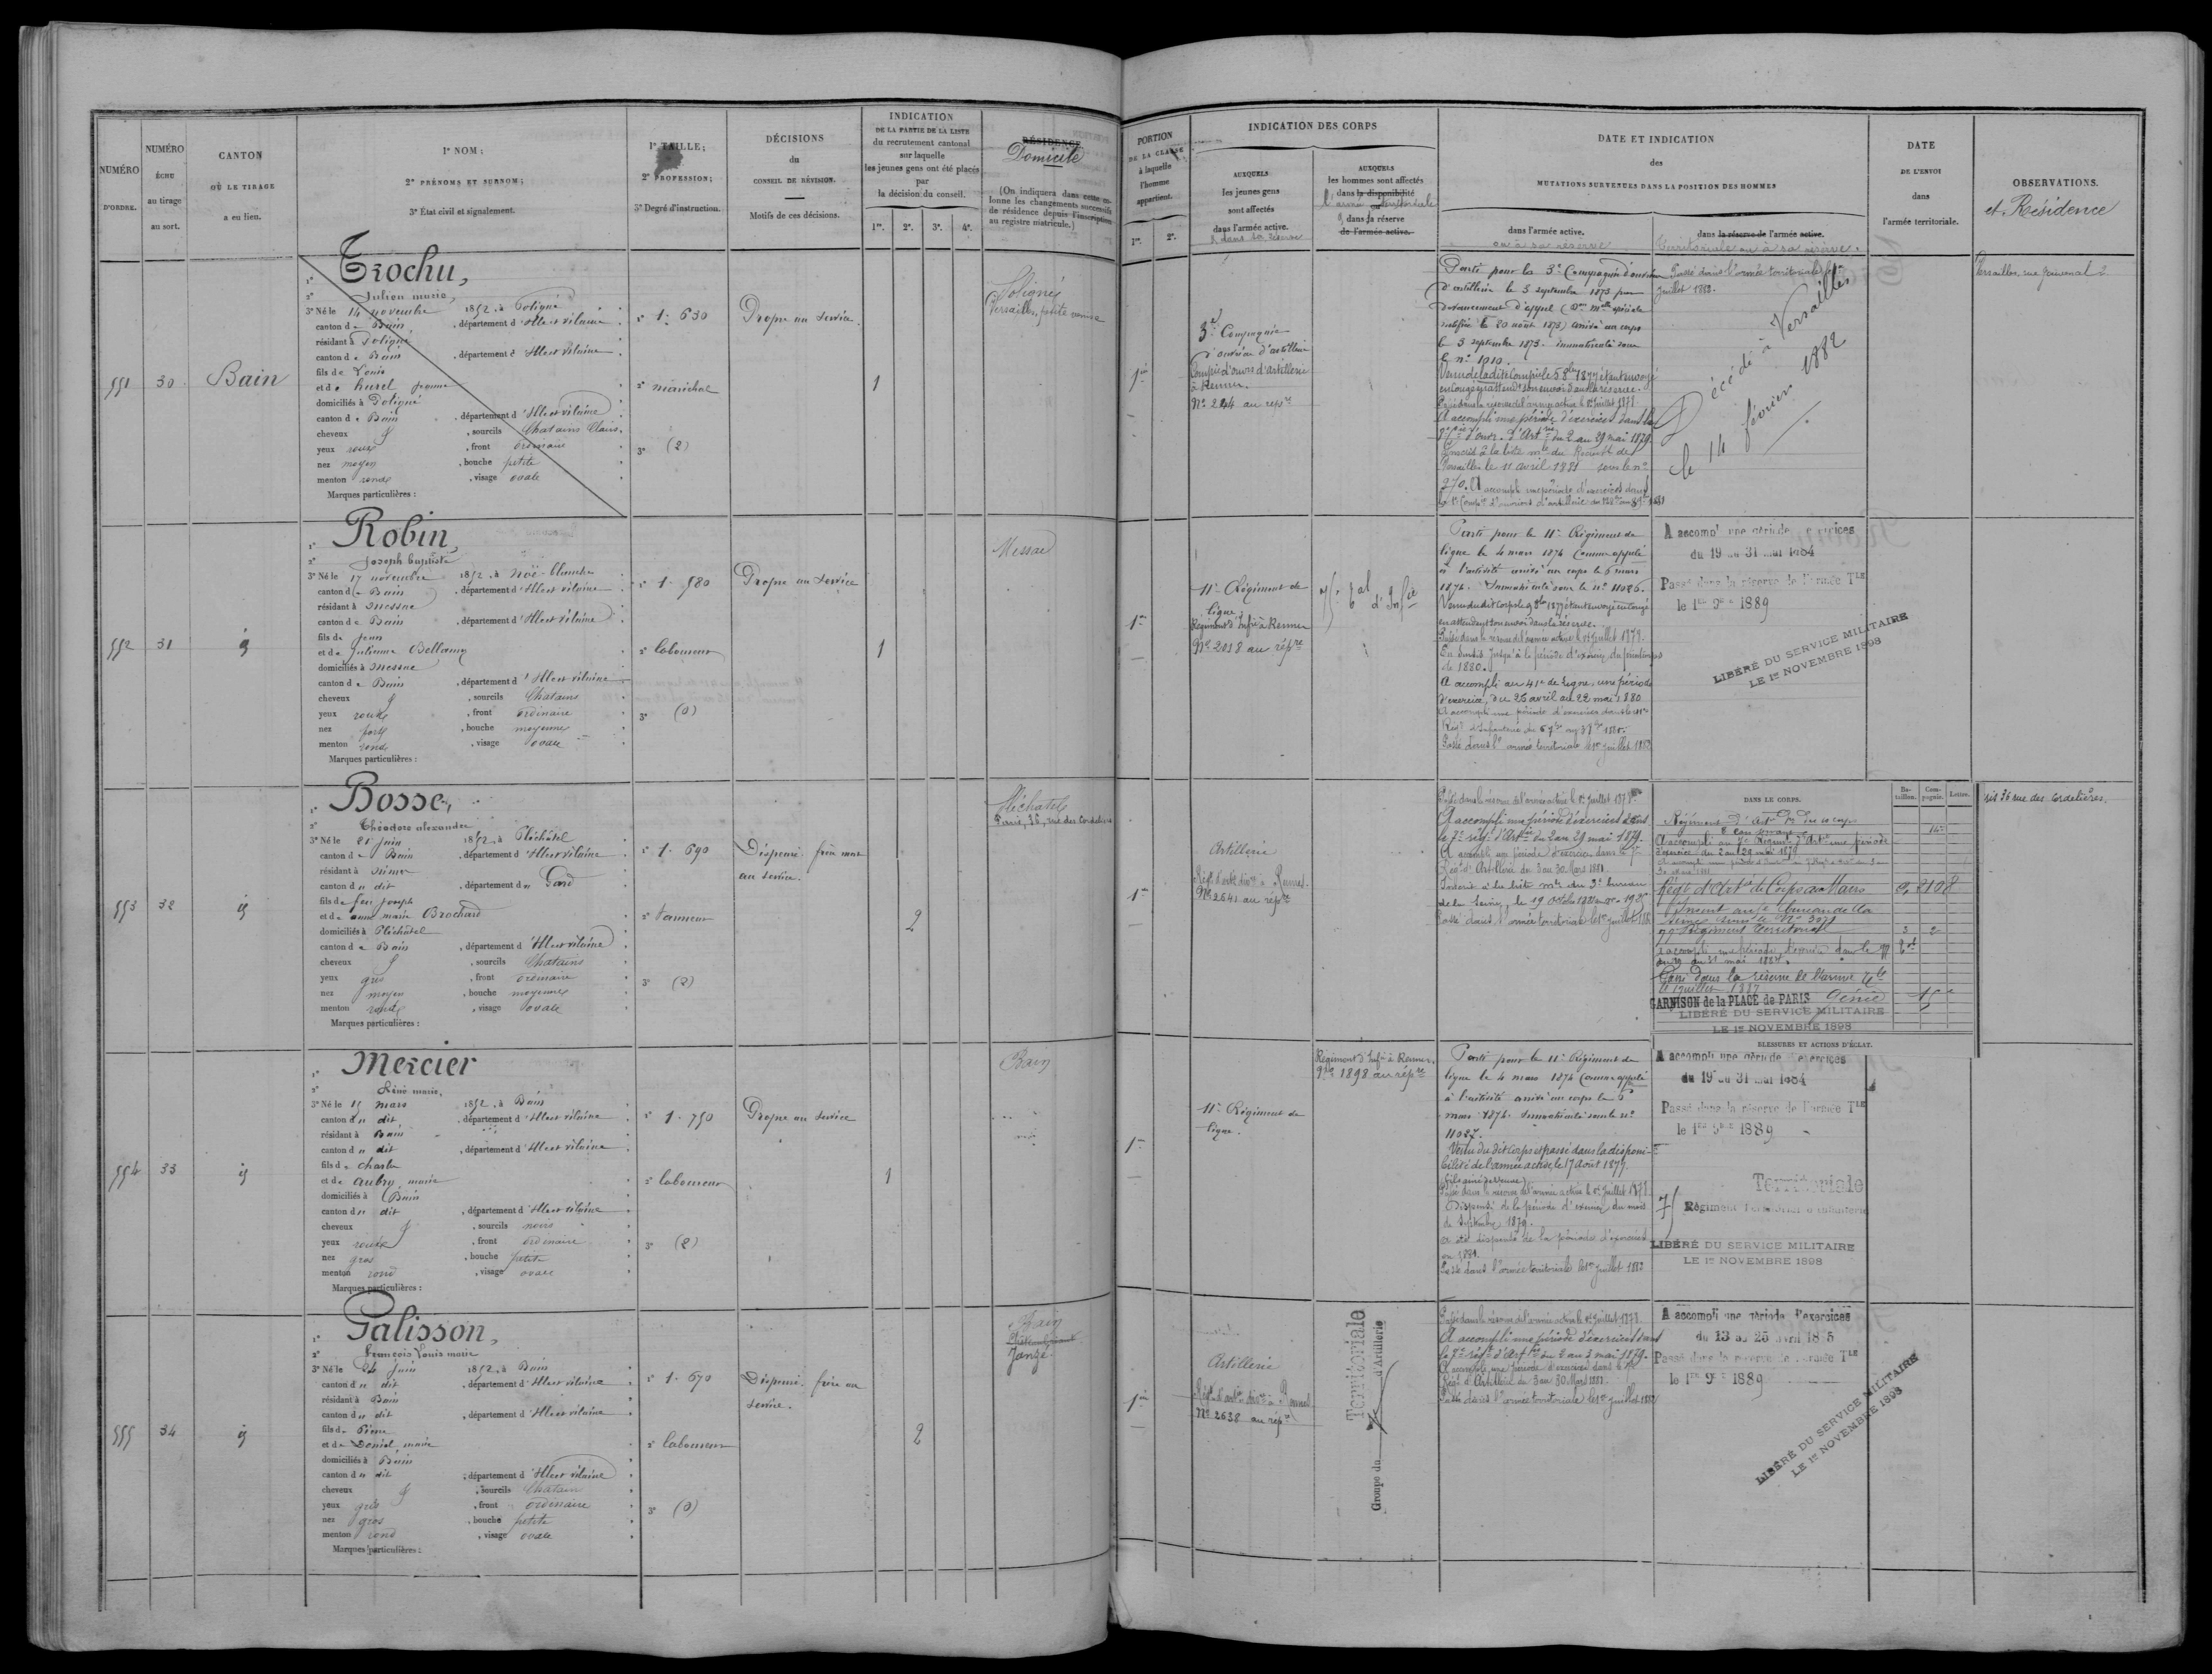 NUMÉRO
D'ORDRE.
NUMÉRO
ÉCHU
au tirage
au sort.
CANTON
OÙ LE TIRAGE
a eu lieu.
1° NOM ;
2° PRÉNOMS ET SURNOM ;
3° État civil et signalement.
1° TAILLE ;
2° PROFESSION ;
3° Degré d'instruction.
DÉCISIONS
du
CONSEIL DE RÉVISION.
Motifs de ces décisions.
INDICATION
DE LA PARTIE DE LA LISTE
du recrutement cantonal
sur laquelle
les jeunes gens ont été placés
par
la décision du conseil.
1re. 2e. 3e. 4e.
RÉSIDENCE
Domicile
(On indiquera dans cette colonne les changements successifs
de résidence depuis l'inscription
au registre matricule.)
PORTION
DE LA CLASSE
à laquelle
l'homme
appartient.
1re. 2e.
INDICATION DES CORPS
AUXQUELS
les jeunes gens
sont affectés
dans l'armée active.
& dans sa réserve
AUXQUELS
les hommes sont affectés
1° dans la disponibilité
l'armée territoriale
2° dans la réserve
de l'armée active.
DATE ET INDICATION
des
MUTATIONS SURVENUES DANS LA POSITION DES HOMMES
dans l'armée active.
ou à sa réserve
dans la réserve de l'armée active.
territoriale ou à sa réserve.
DATE
DE L'ENVOI
dans
l'armée territoriale.
OBSERVATIONS.
et Résidence
551
30
Bain
1° Trochu,
2° Julien marie,
3° Né le 14 novembre 1852, à Poligné
canton de Bain, département d'Ille et vilaine
résidant à Poligné
canton de Bain, département d'Ille et vilaine
fils de Louis
et de hurel jeanne
domiciliés à Poligné
canton de Bain, département d'Ille et vilaine
cheveux et, sourcils Chatains Clairs
yeux roux, front ordinaire
nez moyen, bouche petite
menton rond, visage ovale
Marques particulières :
1° 1. 630
2° maréchal
3° (2)
Propre au service
1
Poligné
Versailles, petite venise
1re
3e Compagnie
d'ouvriers d'artillerie
Compie d'ouvrs d'artillerie
à Rennes.
No 244 au repre
Parti pour la 3e Compagnie d'ouvriers
d'artillerie le 3 septembre 1873 par
devancement d'appel
notifiée le 20 août 1873) arrivé au corps
le 3 septembre 1873. immatriculé sous
le no 1010.
Passé dans la réserve de l'armée active le 1er Juillet 1878.
A accompli une période d'exercices dans la
du 2 au 29 mai 1879
Versailles le 11 avril 1881 sous le no
270. A accompli une période d'exercices dans
Passé dans l'armée territoriale le 1er
Juillet 1882.
Décédé à Versailles
le 14 février 1882
Versailles, rue Jouvenal 2
552
31
id
1° Robin,
2° Joseph baptiste
3° Né le 17 novembre 1852, à Noë-blanche
canton de Bain, département d'Ille et vilaine
résidant à Messac
canton de Bain, département d'Ille et vilaine
fils de Jean
et de Julienne Bellamy
domiciliés à Messac
canton de Bain, département d'Ille et vilaine
cheveux et, sourcils Chatains
yeux roux, front ordinaire
nez fort, bouche moyenne
menton rond, visage ovale
Marques particulières :
1° 1. 580
2° laboureur
3° (0)
Propre au service
1
Messac
1re
11e Régiment de
ligne
Régiment d'Infie à Rennes
No 2018 au répre
Parti pour le 11e Régiment de
ligne le 4 mars 1874 comme appelé
à l'activité arrivé au corps le 6 mars
1874. Immatriculé sous le no 11026.
en attendant son envoi dans la réserve.
Passé dans la réserve de l'armée active le 1er Juillet 1878.
En sursis jusqu'à la période d'exercices du printemps
de 1880.
A accompli au 41e de ligne, une période
d'exercice, du 26 avril au 22 mai 1880
A accompli une période d'exercices dans le
Passé dans l'armée territoriale le 1er juillet 1882
A accompli une période d'exercices
du 19 au 31 mai 1884
Passé dans la réserve de l'armée Tle
le 1er 9bre 1889
LIBÉRÉ DU SERVICE MILITAIRE
LE 1er NOVEMBRE 1898
553
32
id
1° Bosse,
2° Théodore alexandre
3° Né le 21 juin 1852, à Pléchâtel
canton de Bain, département d'Ille et vilaine
résidant à Nîmes
canton du dit, département du Gard
fils de feu joseph
et de anne marie Brochard
domiciliés à Pléchâtel
canton de Bain, département d'Ille et vilaine
cheveux et, sourcils Chatains
yeux gris, front ordinaire
nez moyen, bouche moyenne
menton rond, visage ovale
Marques particulières :
1° 1. 690
2° tanneur
3° (2)
Dispensé. frère mort
au service.
2
Pléchatel
Paris, 36, rue des Cordelières
1re
Artillerie
Régt d'artie divre à Rennes.
No 2641 au répre
Passé dans la réserve de l'armée active le 1er Juillet 1878.
A accompli une période d'exercices dans
le 7e régt d'Artie du 2 au 29 mai 1879.
A accompli une période d'exercices dans le 7e
Régt d'Artillerie du 3 au 30 Mars 1881.
Passé dans l'armée territoriale le 1er juillet 1882
DANS LE CORPS.
Bataillon. Compagnie. Lettre.
A accompli au 7e Régimt d'Artie une période
d'exercice du 2 au 29 mai 1879
Régt d'Artie de Corps au Mans
77e Régiment territorial
Passé dans la réserve de l'armée Tle
GARNISON de la PLACE de PARIS Génie
LIBÉRÉ DU SERVICE MILITAIRE
LE 1er NOVEMBRE 1898
BLESSURES ET ACTIONS D'ÉCLAT.
36 rue des Cordelières.
554
33
id
1° Mercier
2° René marie,
3° Né le 15 mars 1852, à Bain
canton du dit, département d'Ille et vilaine
résidant à Bain
canton du dit, département d'Ille et vilaine
fils de Charles
et de aubry marie
domiciliés à Bain
canton du dit, département d'Ille et vilaine
cheveux et, sourcils noirs
yeux roux, front ordinaire
nez gros, bouche petite
menton rond, visage ovale
Marques particulières :
1° 1. 750
2° laboureur
3° (2)
Propre au service
1
Bain
1re
11e Régiment de
ligne.
Régiment d'Infie à Rennes,
No 1898 au répre
Parti pour le 11e Régiment de
ligne le 4 mars 1874 comme appelé
à l'activité arrivé au corps le 6
mars 1874. Immatriculé sous le no
11027.
Venu du dit corps et passé dans la disponibilité de l'armée active, le 17 août 1877.
(fils aîné de veuve)
Passé dans la réserve de l'armée active le 1er Juillet 1878.
Dispensé de la période d'exercices du mois
de Septembre 1879.
a été dispensé de la période d'exercices
en 1881.
Passé dans l'armée territoriale le 1er juillet 1882
A accompli une période d'exercices
du 19 au 31 mai 1884
Passé dans la réserve de l'armée Tle
le 1er 9bre 1889
Territoriale
Régiment territorial d'infanterie
LIBÉRÉ DU SERVICE MILITAIRE
LE 1er NOVEMBRE 1898
555
34
id
1° Galisson,
2° François Louis marie
3° Né le 24 Juin 1852, à Bain
canton du dit, département d'Ille et vilaine
résidant à Bain
canton du dit, département d'Ille et vilaine
fils de Pierre
et de Daniel marie
domiciliés à Bain
canton du dit, département d'Ille et vilaine
cheveux et, sourcils Chatain
yeux gris, front ordinaire
nez gros, bouche petite
menton rond, visage ovale
Marques particulières :
1° 1. 670
2° laboureur
3° (0)
Dispensé. frère au
service.
2
Bain
Janzé
1re
Artillerie
Régt d'artie divre à Rennes
No 2638 au répre
Territoriale
Groupe du d'Artillerie
Passé dans la réserve de l'armée active le 1er Juillet 1878.
A accompli une période d'exercices dans
A accompli une période d'exercices dans le 7e
Régt d'Artillerie du 3 au 30 Mars 1881.
Passé dans l'armée territoriale le 1er juillet 1882
A accompli une période d'exercices
du 13 au 25 avril 1885
Passé dans la réserve de l'armée Tle
le 1er 9bre 1889
LIBÉRÉ DU SERVICE MILITAIRE
LE 1er NOVEMBRE 1898